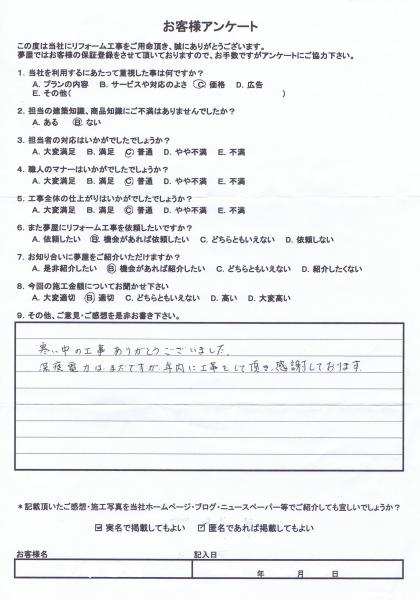 お客様アンケート
この度は当社にリフォーム工事をご用命頂き、誠にありがとうございます。
夢屋ではお客様の保証登録をさせて頂いておりますので、お手数ですがアンケートにご協力下さい。
1. 当社を利用するにあたって重視した事は何ですか?
A. プランの内容 B. サービスや対応のよさ C. 価格 D. 広告
E. その他( )
2. 担当の建築知識、商品知識にご不満はありませんでしたか?
A. ある B. ない
3. 担当者の対応はいかがでしたでしょうか?
A. 大変満足 B. 満足 C. 普通 D. やや不満 E. 不満
4. 職人のマナーはいかがでしたでしょうか?
A. 大変満足 B. 満足 C. 普通 D. やや不満 E. 不満
5. 工事全体の仕上がりはいかがでしたでしょうか?
A. 大変満足 B. 満足 C. 普通 D. やや不満 E. 不満
6. また夢屋にリフォーム工事を依頼したいですか?
A. 依頼したい B. 機会があれば依頼したい C. どちらともいえない D. 依頼しない
7. お知り合いに夢屋をご紹介いただけますか?
A. 是非紹介したい B. 機会があれば紹介したい C. どちらともいえない D. 紹介したくない
8. 今回の施工金額についてお聞かせ下さい
A. 大変適切 B. 適切 C. どちらともいえない D. 高い D. 大変高い
9. その他、ご意見・ご感想を是非お書き下さい。
寒い中の工事ありがとうございました。
深夜電力はまだですが、年内に工事をして頂き、感謝しております。
*記載頂いたご感想・施工写真を当社ホームページ・ブログ・ニュースペーパー等でご紹介しても宜しいでしょうか?
実名で掲載してもよい 匿名であれば掲載してもよい
お客様名 記入日
年 月 日